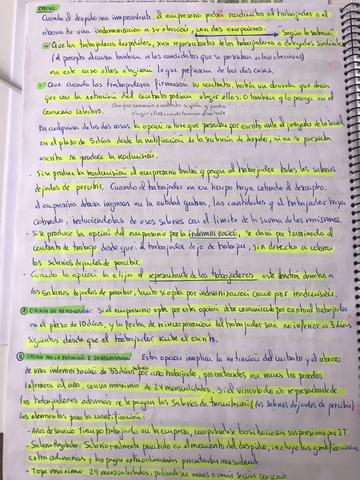 OPCIÓN
Cuando el despido sea improcedente, el empresario podrá readmitir al trabajador o el
abono de una indemnización a su elección, con dos excepciones. Según la sentencia
- Que los trabajadores despedidos, sean representantes de los trabajadores o delegados sindicales
(el precepto alcanza también a los candidatos que se presentan a las elecciones)
en este caso ellos elegirán lo que prefieran de las dos cosas.
- Que cuando los trabajadores firmaron su contrato, había una cláusula que decía
que en la extinción del contrato podrían elegir ellos. O también q lo ponga en el
Convenio colectivo.
En cualquiera de los dos casos la opción tiene que presentarla por escrito ante el juzgado de lo social
en el plazo de 5 días desde la notificación de la sentencia de despido, si no se presenta
escrito se produce la readmisión.
- Si se produce la readmisión el empresario tendrá q pagar al trabajador todos los salarios
dejados de percibir. Cuando el trabajador en ese tiempo haya cobrado desempleo,
el empresario deberá ingresar en la entidad gestora, las cantidades q el trabajador haya
cobrado, deduciéndolas de esos salarios con el límite de la suma de los mismos.
- Si se produce la opción del empresario por la indemnización, se dará por terminado el
contrato de trabajo desde que el trabajador dejó de trabajar, sin derecho a cobrar
los salarios dejados de percibir.
- Cuando la opción la elija el representante de los trabajadores este tendrá derecho a
los salarios dejados de percibir, tanto si opta por indemnización como por readmisión.
OPCIÓN DE READMISIÓN: Si el empresario opta por esta opción debe comunicarlo por escrito al trabajador
en el plazo de 10 días, y la fecha de reincorporación del trabajador será no inferior a 3 días
siguientes desde que el trabajador recibe el escrito.
Esta opción implica la extinción del contrato y el abono
de una indemnización de 33 días salario por año trabajado, prorrateados en meses los periodos
inferiores al año con un máximo de 24 mensualidades. Si el vínculo es representante de
los trabajadores además se le pagan los salarios de tramitación (los salarios dejados de percibir)
los elementos para la cuantificación:
- Años de servicio: tiempo trabajado en la empresa, computándose
- Salario Regulador: Salario realmente percibido en el momento del despido, incluye las gratificaciones
extraordinarias y las pagas extraordinarias prorrateadas mensualmente.
- Tope máximo 24 mensualidades, pudiendo ser menos o más según convenio